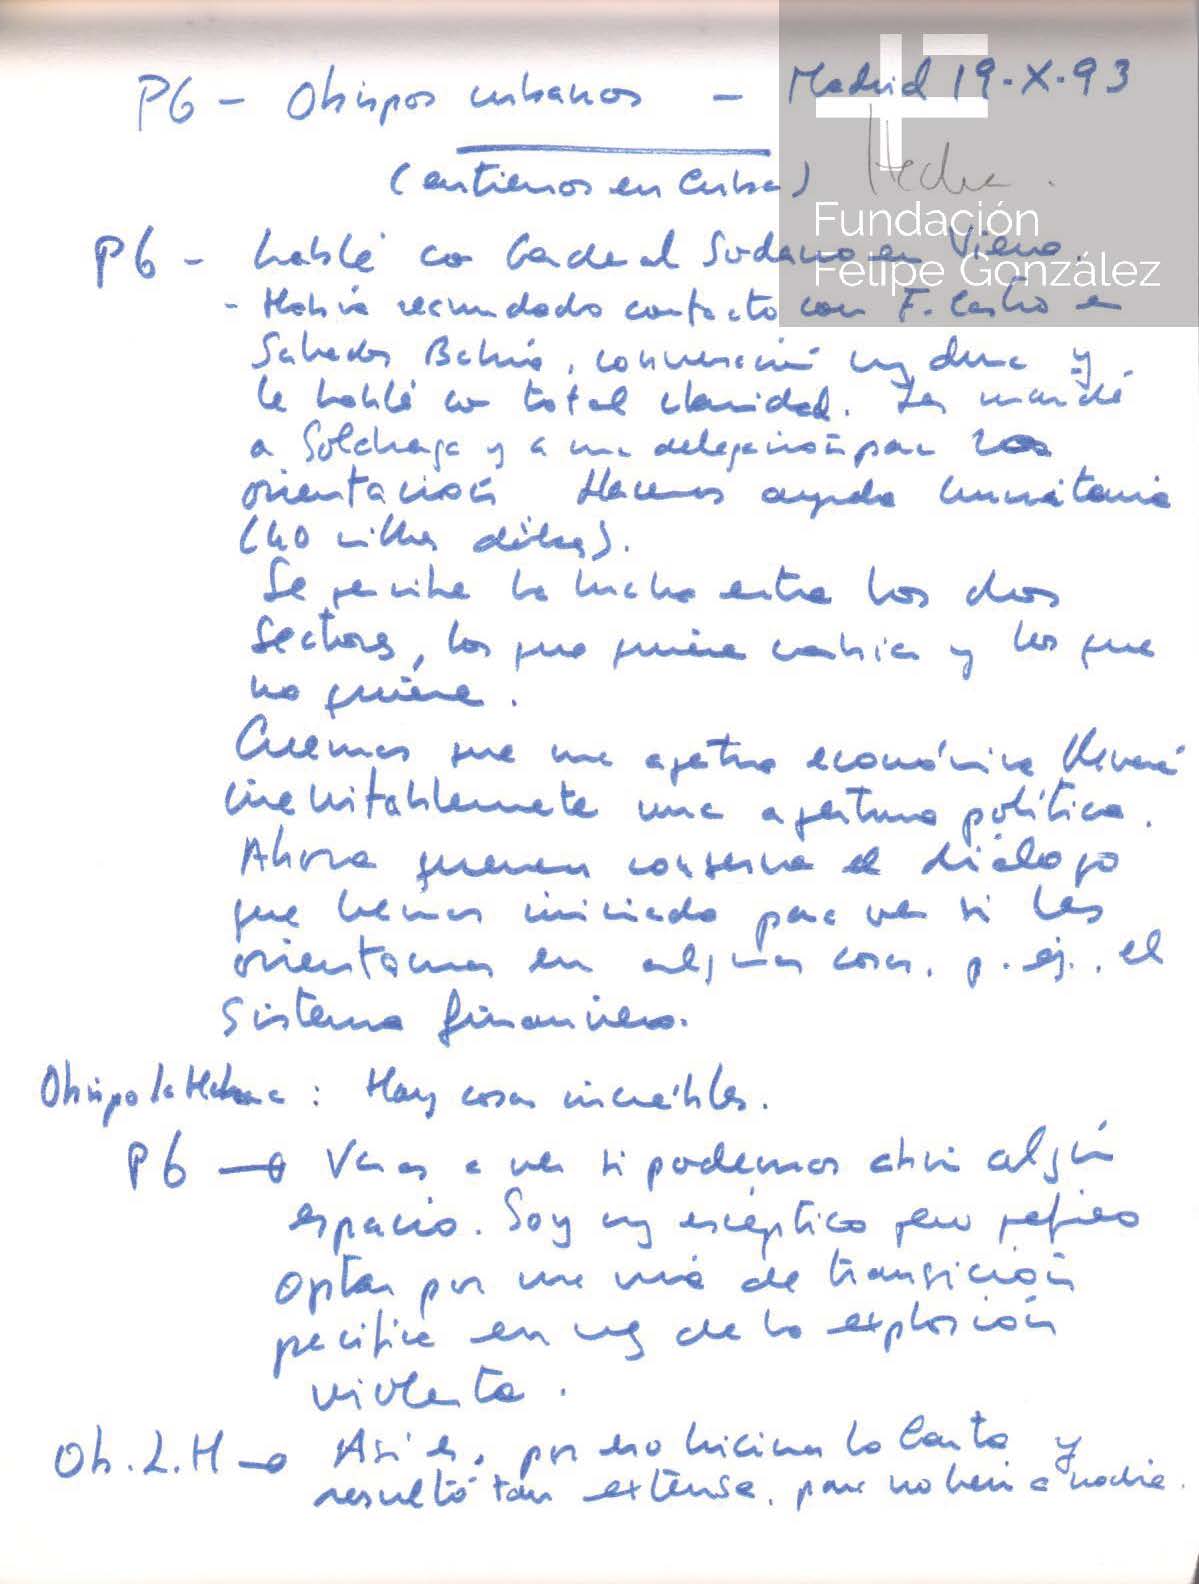 PG - Obispos cubanos - Madrid 19-X-93
(entierros en Cuba) Hecha.
Fundación
Felipe González
PG - hablé con Cardenal Sodano en Viena.
- Había recundado contacto con F. Castro en
Salvador Bahía, conversación muy dura y
le hablé con total claridad. Les mandé
a Solchaga y a una delegación para
orientación Hacemos ayuda humanitaria
(40 millones dólares).
Se percibe la lucha entre los dos
sectores, los que quieren cambiar y los que
no quieren.
Creemos que una apertura económica llevará
inevitablemente una apertura política.
Ahora quieren conservar el diálogo
que hemos iniciado para ver si les
orientamos en algunas cosas, p. ej., el
sistema financiero.
Obispo la Habana: Hay cosas increíbles.
PG → Vamos a ver si podemos abrir algún
espacio. Soy muy escéptico pero prefiero
optar por una vía de transición
pacífica en vez de la explosión
violenta.
Ob. L. H → Así es, por eso hicimos la Carta y
resultó tan extensa, para no herir a nadie.